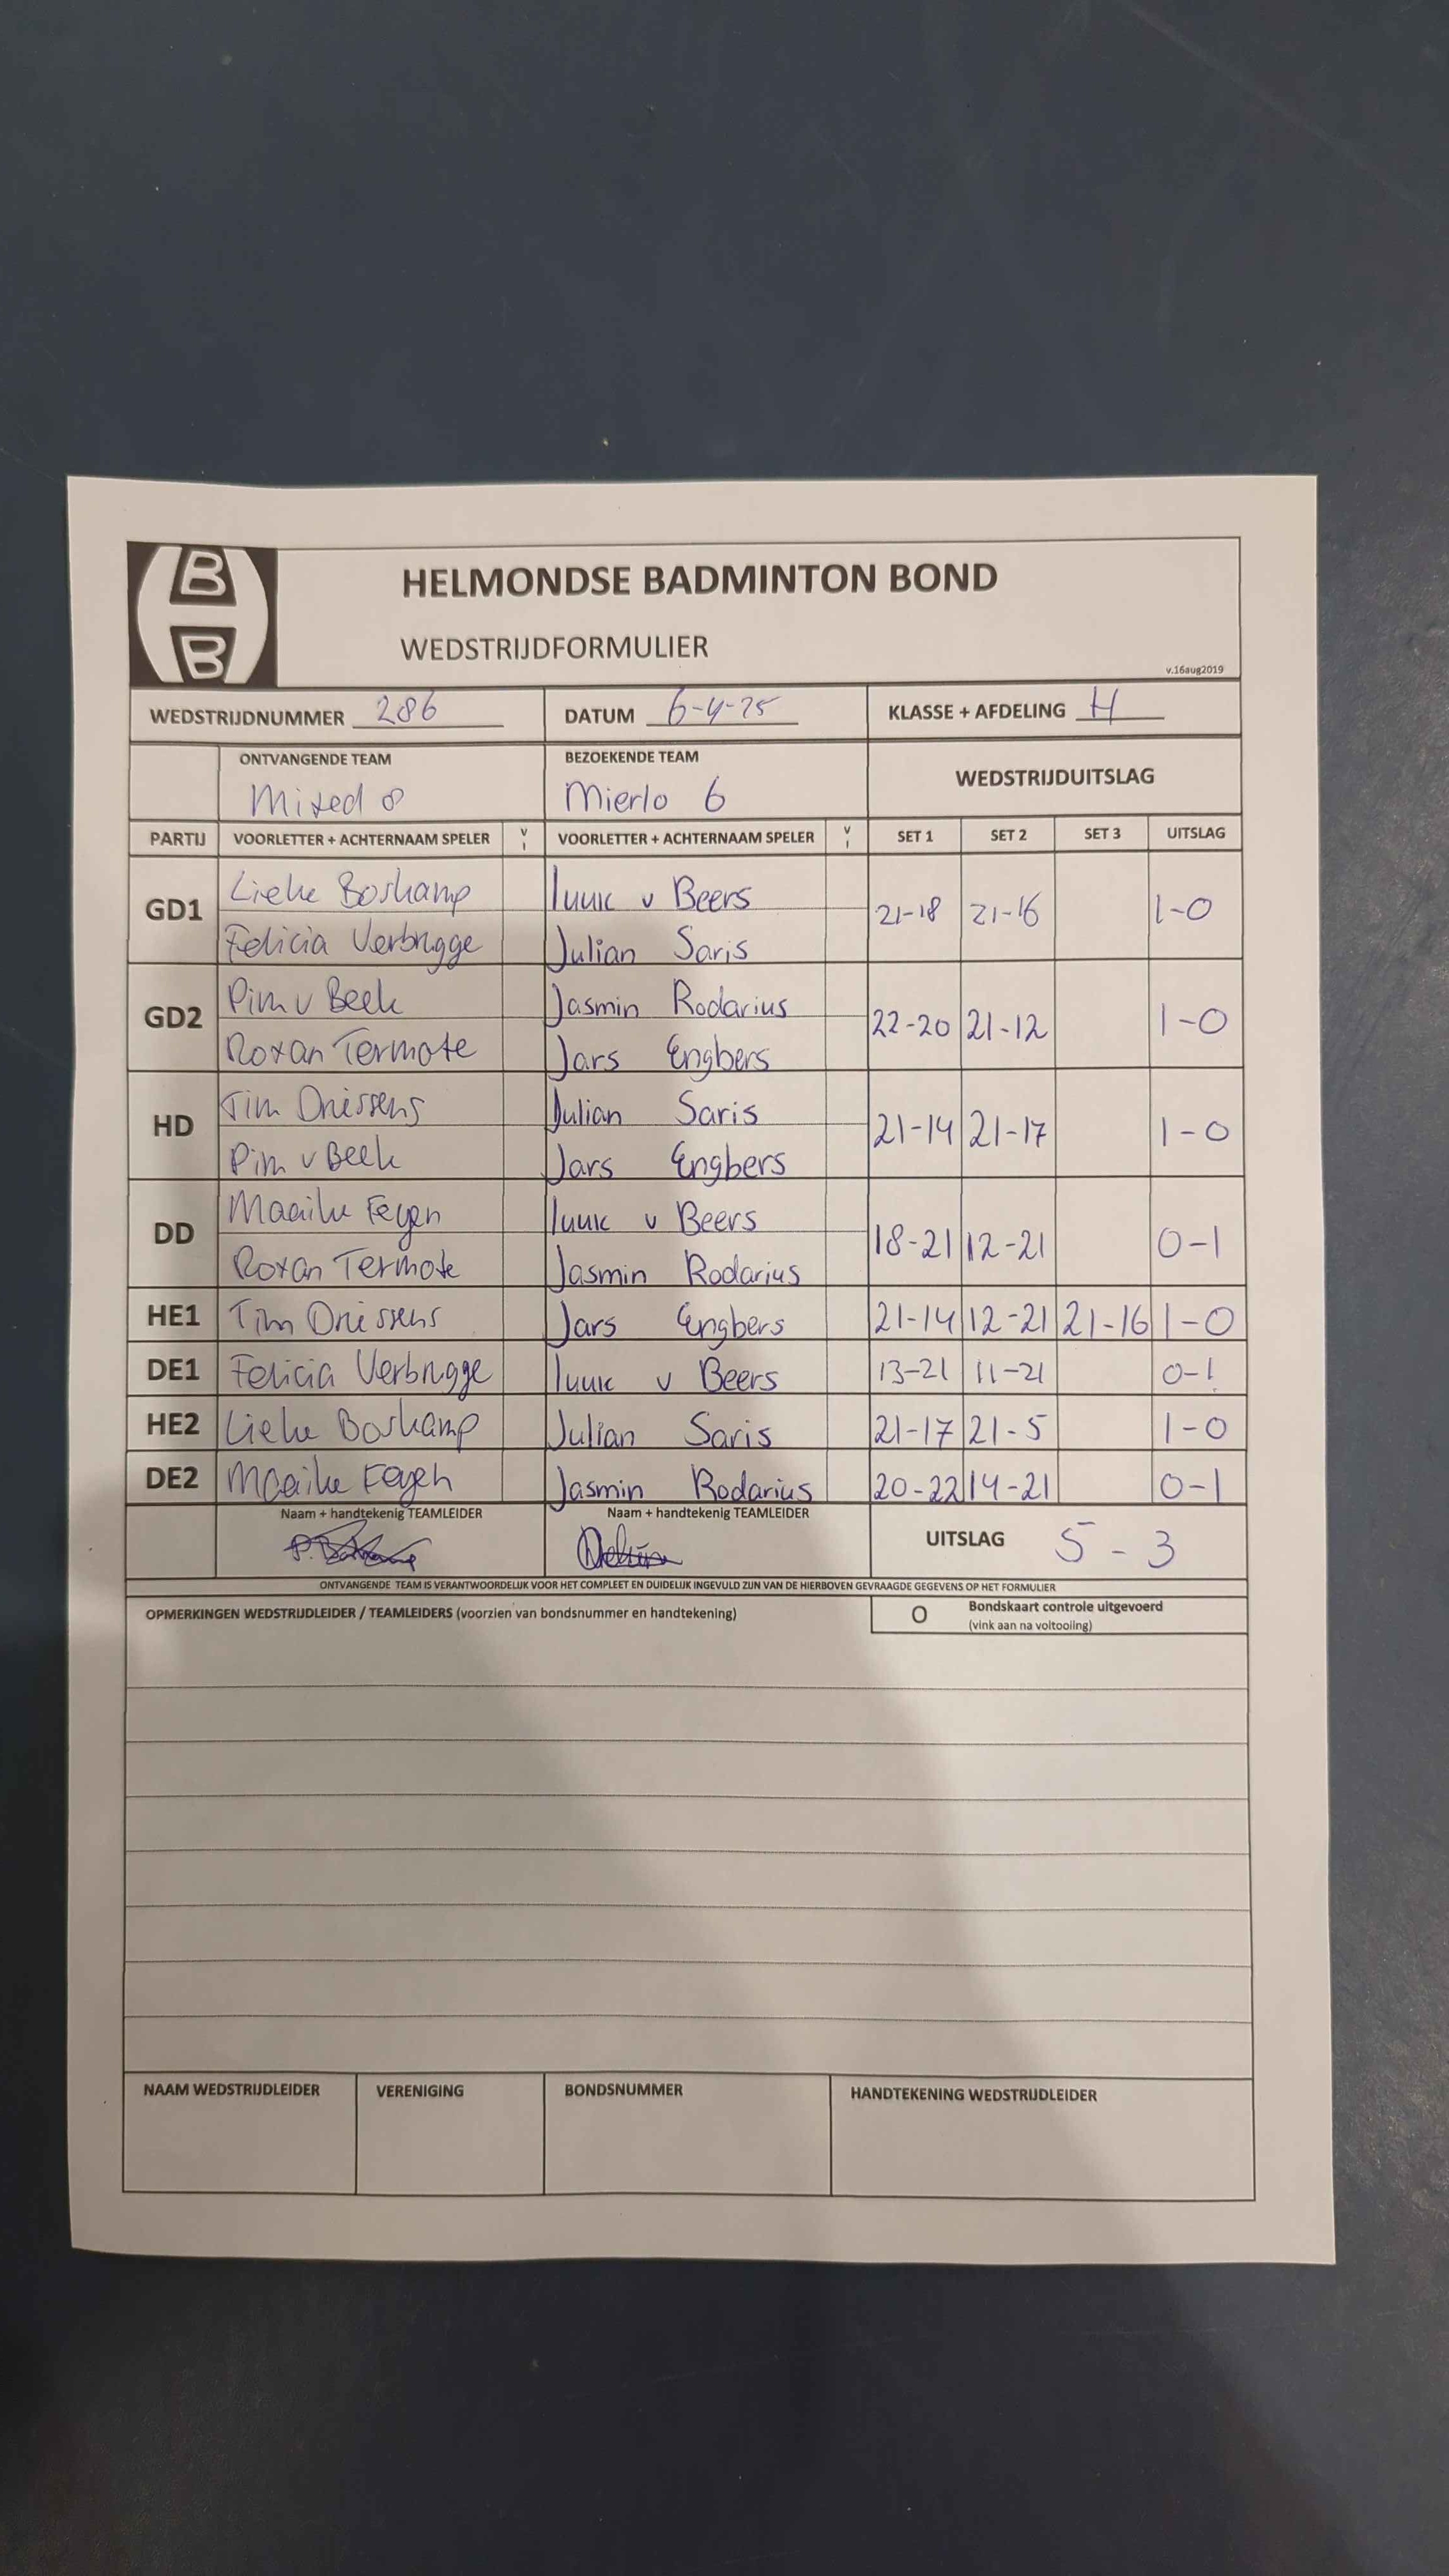 B
B
HELMONDSE BADMINTON BOND
WEDSTRIJDFORMULIER
v.16aug2019
WEDSTRIJDNUMMER 286 DATUM 6-4-25 KLASSE + AFDELING H
ONTVANGENDE TEAM BEZOEKENDE TEAM WEDSTRIJDUITSLAG
Mixed 8 Mierlo 6
PARTIJ VOORLETTER + ACHTERNAAM SPELER V I VOORLETTER + ACHTERNAAM SPELER V I SET 1 SET 2 SET 3 UITSLAG
GD1 Lieke Boskamp v Beers 21-18 21-16 1-0
Felicia Verbrugge Julian Saris
GD2 Pim v Beek Jasmin Rodarius 22-20 21-12 1-0
Roxan Termote Jars Engbers
HD Tim Driessens Julian Saris 21-14 21-17 1-0
Pim v Beek Jars Engbers
DD Maaike Feyen v Beers 18-21 12-21 0-1
Roxan Termote Jasmin Rodarius
HE1 Tim Driessens Jars Engbers 21-14 12-21 21-16 1-0
DE1 Felicia Verbrugge v Beers 13-21 11-21 0-1
HE2 Lieke Boskamp Julian Saris 21-17 21-5 1-0
DE2 Maaike Feyen Jasmin Rodarius 20-22 14-21 0-1
Naam + handtekenig TEAMLEIDER Naam + handtekenig TEAMLEIDER UITSLAG 5 - 3
ONTVANGENDE TEAM IS VERANTWOORDELIJK VOOR HET COMPLEET EN DUIDELIJK INGEVULD ZIJN VAN DE HIERBOVEN GEVRAAGDE GEGEVENS OP HET FORMULIER
OPMERKINGEN WEDSTRIJDLEIDER / TEAMLEIDERS (voorzien van bondsnummer en handtekening) O Bondskaart controle uitgevoerd
(vink aan na voltooiing)
NAAM WEDSTRIJDLEIDER VERENIGING BONDSNUMMER HANDTEKENING WEDSTRIJDLEIDER